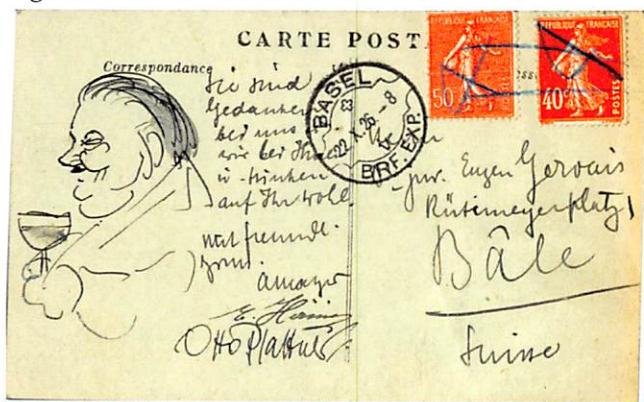 CARTE POST
Correspondance
Sie sind
Gedanken
bei uns
wir bei Ihnen
u. trinken
auf Ihr Wohl.
mit freundl.
Otto Plattner
BASEL
22.X.26-8
BRF. EXP.
REPUBLIQUE FRANÇAISE
50
REPUBLIQUE FRANÇAISE
40c
POSTES
Eugen Gervais
Rütimeyerplatz 1
Bâle
Suisse